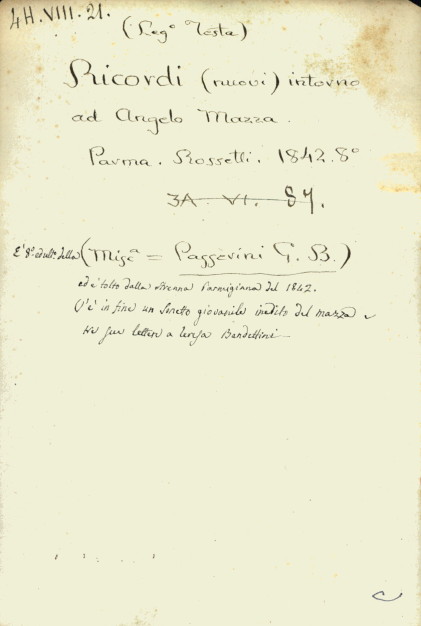 4H.VIII.21.
(Leg.º Testa)
Ricordi (nuovi) intorno
ad Angelo Mazza.
Parma. Rossetti. 1842. 8º
3A. VI. 87.
E' 8º ed ult.º della (Misc.ª = Passerini G. B.)
ed è tolto dalla Strenna Parmigiana del 1842.
V'è in fine un Sonetto giovanile inedito del Mazza e
tre sue lettere a Teresa Bandettini